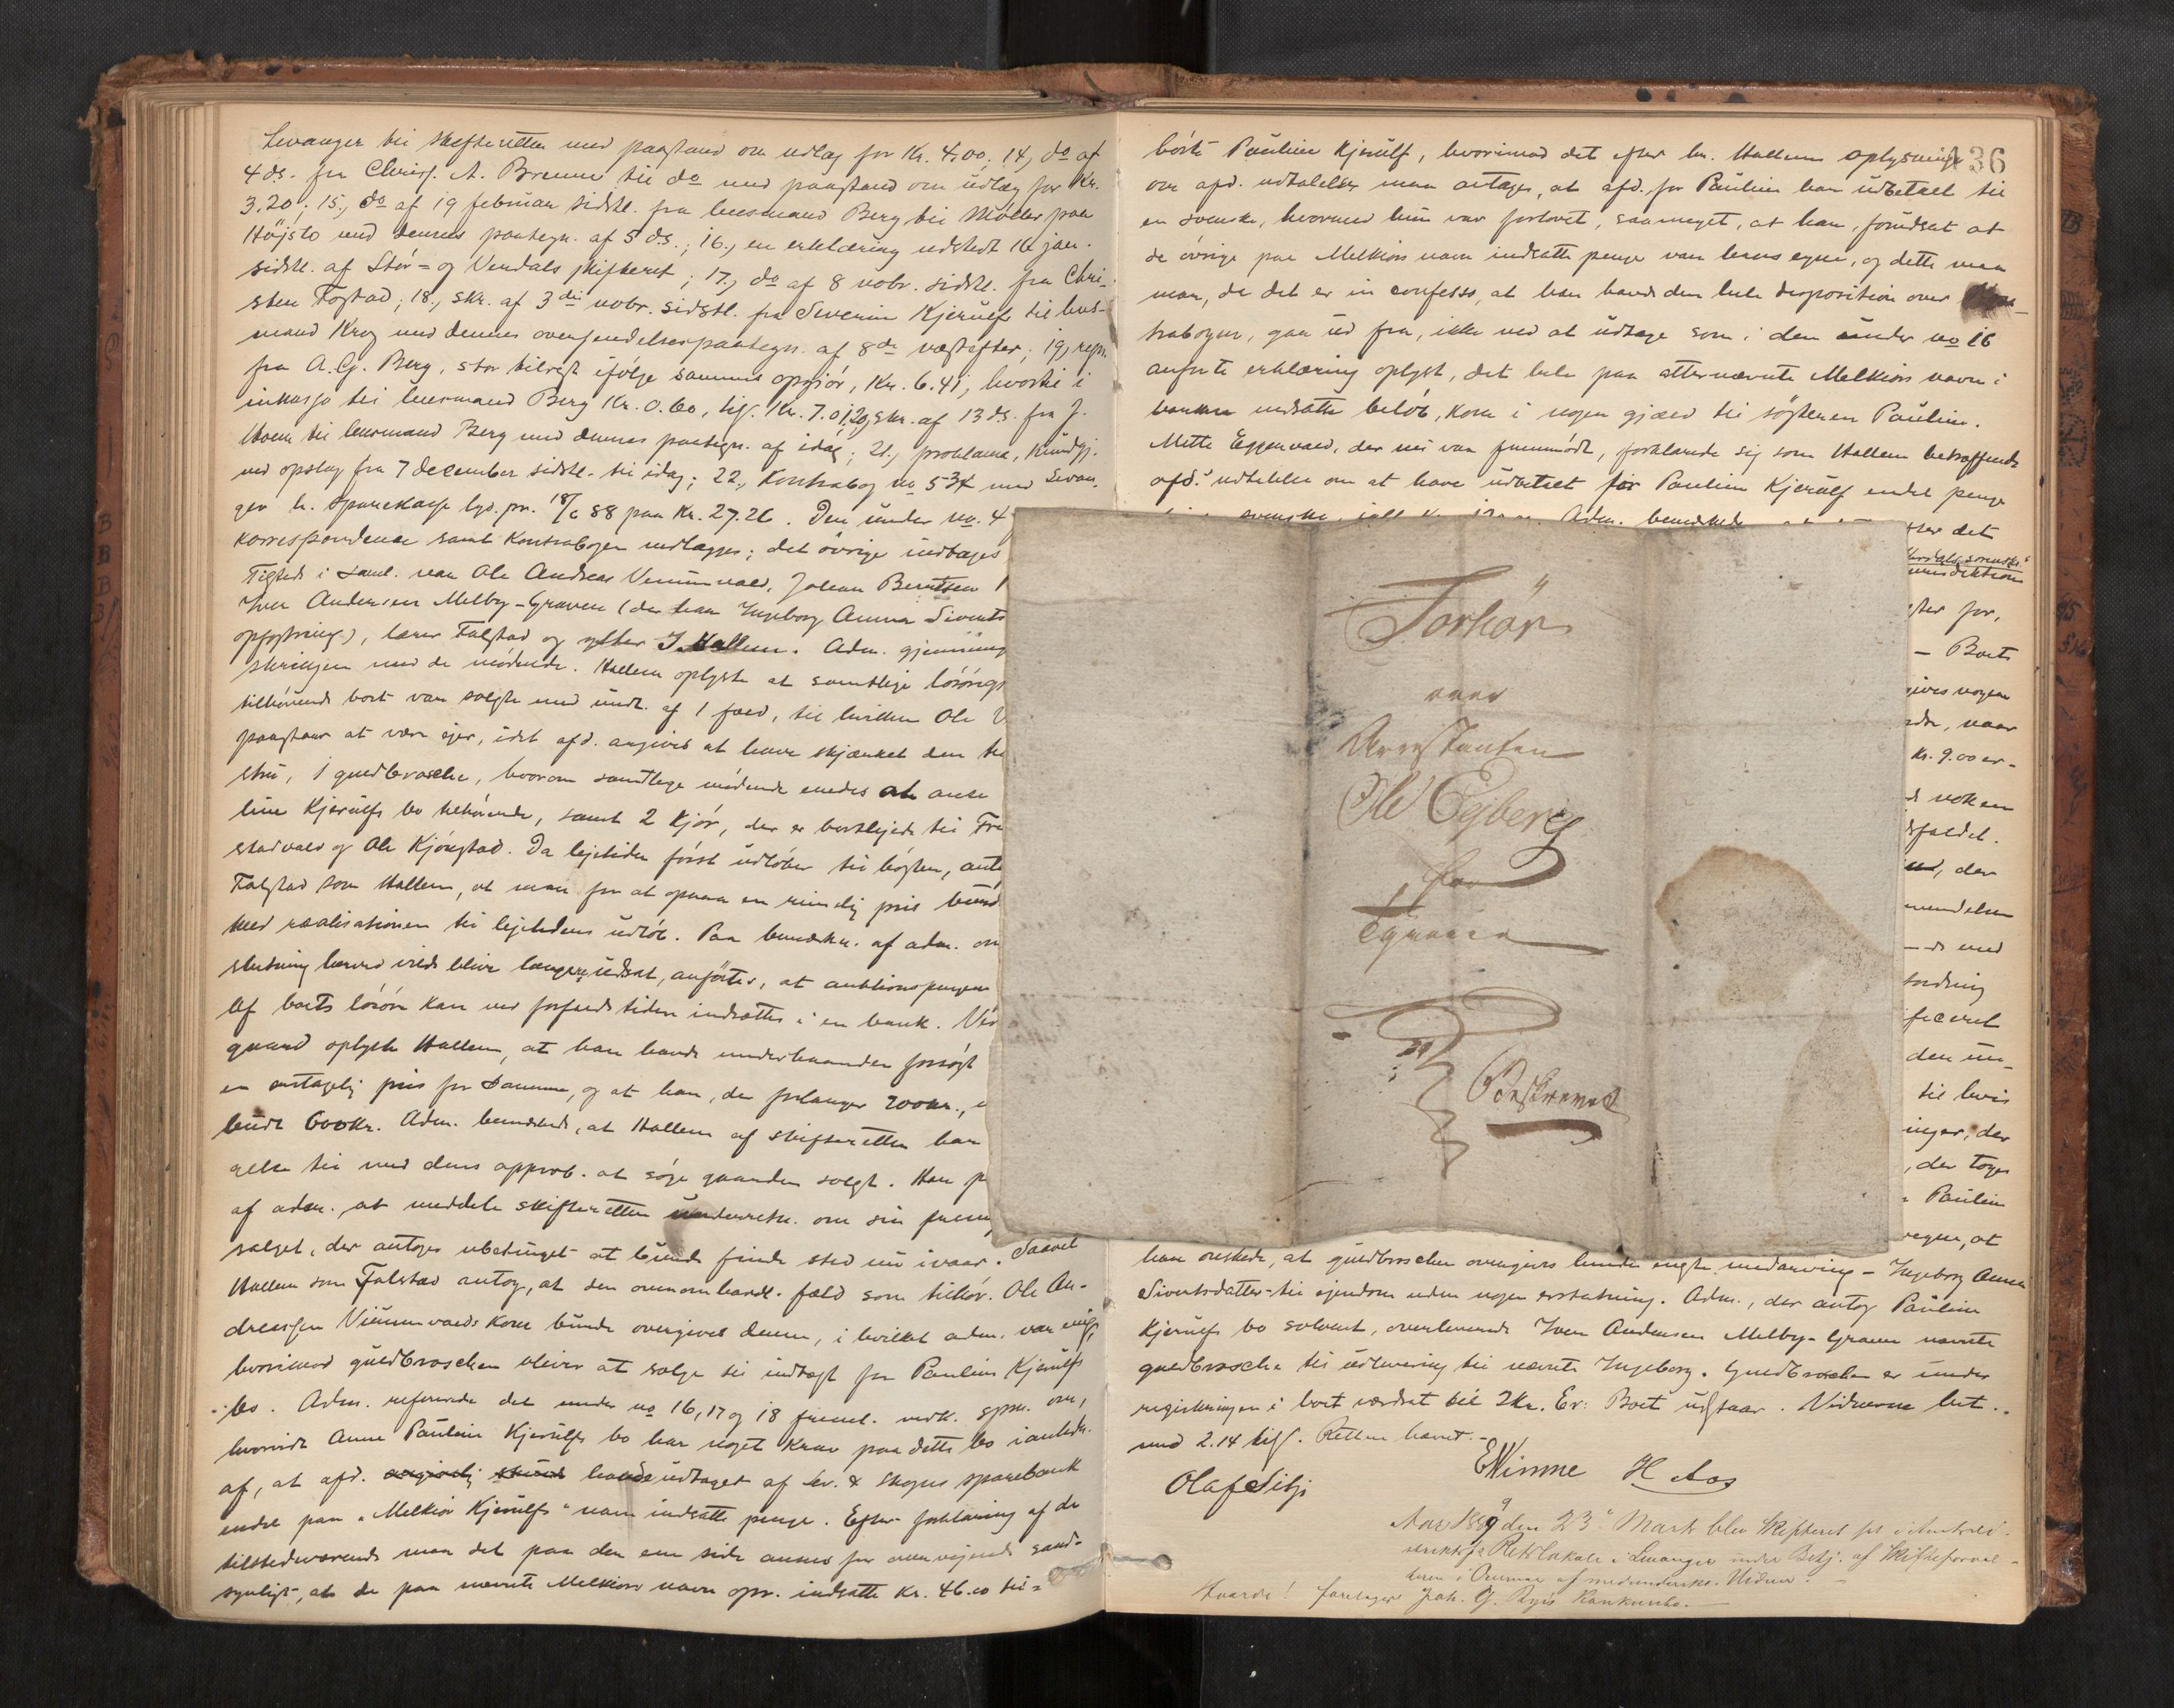 Levanger til skifteretten med paastand om udlæg for Kr. 4.00; 14, do af
4 ds. fra Chrisf. A. Brenne til do med paastand om udlæg for Kr.
3.20; 15, do af 19 februar sidstl. fra lensmand Berg til Møller paa
Höjslo med dennes paategn. af 5 ds.; 16, en erklæring udstedt 16 jan.
sidstl. af Stör- og Værdals skifteret; 17, do af 8 nobr. sidstl. fra Chri-
sten Fostad; 18, skr. af 3die nobr. sidstl. fra Severin Kjerulf til hus-
mand Krog med dennes oversendelsespaategn. af 8de næstefter; 19, regn.
fra A. G. Berg, stor tilrest ifölge sammes opgjör, Kr. 6.41, hvortil i
inkasso til lensmand Berg Kr. 0.60, tils. Kr. 7.01; 20, skr. af 13 ds. fra J.
Moen til lensmand Berg med dennes paategn. af idag; 21, proklama, kundgj.
ved opslag fra 7 december sidstl. til idag; 22, Kontrabog no 534 med Levan-
ger l. sparekasse lyd. pr. 18/6 88 paa Kr. 27.26. Den under no. 4
korrespondence samt Kontrabogen vedlægges; det övrige indtages
Tilstede i saml. var Ole Andreas Venumvald, Johan Berntsen
Iver Andersen Melby-Graven (der har Ingeborg Anna Siverts
opfostring), lærer Falstad og efter J. Hallem. Adm. gjennemg
skringen med de mödende. Hallem oplyste at samtlige lösöregj
tilhörende boet var solgte med undt. af 1 fæld, til hvilken Ole V
paastaar at være ejer, idet afd. angives at have skjænket den til
stru, 1 guldbrosche, hvorom samtlige mödende enedes at anse
line Kjerulfs bo tilhörende, samt 2 kjör, der er bortlejede til Fre
stadvald og Ole Kjöngstad. Da lejetiden först udlöber til hösten, anto
Falstad som Hallem, at man for at opnaa en rimelig pris burde
med realisationen til lejetidens udlöb. Paa bemærkn. af adm. om
slutning herved vilde blive længere udsat, anförtes, at auktionspengene
af boets lösöre kan ved forfaldstiden indsættes i en bank. Ved
gaard oplyste Hallem, at han havde underhaanden forsögt
en antagelig pris for samme, og at han, der forlanger 700 kr., e
budt 600 kr. Adm. bemærkede, at Hallem af skifteretten har
gelse til med dens approb. at söge gaarden solgt. Han p
af adm. at meddele skifteretten underretn. om sin frem
salget, der antages ubetinget at burde finde sted nu ivaar. Saavel
Hallem som Falstad antog, at den ovenomhandl. fæld som tilhör. Ole An-
dreassen Venumvalds kone burde overgives denne, i hvilket adm. var enig,
hvorimod guldbroschen bliver at sælge til indtægt for Pauline Kjerulfs
bo. Adm. refererede det under no 16, 17 og 18 freml. vedk. spm. om,
hvorvidt Anne Pauline Kjerulfs bo har noget krav paa dette bo i anledn.
af, at afd. havde udtaget af Lev. & Skogns sparebank
endel paa "Melkior Kjerulfs" navn indsatte penge. Efter forklaring af de
tilstedeværende maa det paa den ene side anses for overvejende sand-
synligt, at de paa nævnte Melkiors navn opr. indsatte Kr. 46.00 til-
136
hörte Pauline Kjerulf, hvorimod det efter hr. Hallems oplysninger
om afd. udtalelser maa antages, at afd. for Pauline har udbetalt til
en svenske, hvormed hun var forlovet, saameget, at han, forudsat at
de övrige paa Melkiors navn indsatte penge var hans egne, og dette maa
man, da det er in confesso, at han havde den hele disposition over
trabogen, gaa ud fra, ikke ved at udtage som i den under no 16
anförte erklæring oplyst, det hele paa afternævnte Melkiors navn i
banken indsatte belöb, kom i nogen gjæld til sösteren Pauline.
Mette Eggenvald, der nu var fremmödt, forklarede sig som Hallem betræffende
afd.s udtalelse om at have udbetalt for Pauline Kjerulf endel penge
Forhör
over
Arrestanten
Ole Egberg
for
Tyveri
Beskrevet
ter det
Værdals sorenskr.
jurisdiktion
ter for,
– Boets
gives nogen
naar
Kr. 9.00 er-
nok en
sfaldet.
der
mendelsen
ds med
fordring
ficeret
den un-
til hvis
inger, der
, der toges
Pauline
vegne, at
han önskede, at guldbroschen overgives hendes ægte medarving – Ingeborg Anna
Sivertsdatter – til ejendom uden nogen erstatning. Adm., der antog Pauline
Kjerulfs bo solvent, overleverede Iver Andersen Melby-Graven nævnte
guldbrosche til udlevering til nævnte Ingeborg. Guldbroschen er under
registreringen i boet værdsat til 2 Kr. Er: Boet udstaar. Vidnerne bet.
med 2.14 tils. Retten hævet. –
Olaf Sibji
EWinme H Aas
Aar 1889 den 23de Marts blev Skifteret sat i
Retslokale i Levanger under Betj. af Skifteforval-
teren i Overvær af medunderskr. Vidner.
Hvorda! foretages Joh. G. Ryes Konkursbo. –